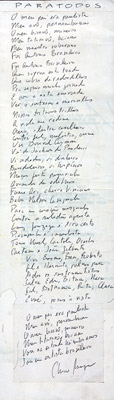 PARATODOS
O meu pai era paulista
Meu avô, pernambucano
O meu bisavô, mineiro
Meu tataravô, baiano
Meu maestro soberano
Foi Antonio Brasileiro
Foi Antonio Brasileiro
Quem soprou esta toada
Que cobri de redondilhas
Pra seguir minha jornada
E com a vista enevoada
Ver o inferno e maravilhas
Nessas tortuosas trilhas
A viola me redime
Creia, ilustre cavalheiro
Contra fel, moléstia, crime
Use Dorival Caymmi
Vá de Jackson do Pandeiro
Vi cidades, vi dinheiro
Bandoleiros, vi hospícios
Moças feito passarinho
Avoando de edifícios
Fume Ari, cheire Vinicius
Beba Nelson Cavaquinho
Para um coração mesquinho
Contra a solidão agreste
Luiz Gonzaga é tiro certo
Pixinguinha é inconteste
Tome Noel, Cartola, Orestes
Caetano e João Gilberto
Viva Erasmo, Ben, Roberto
Gil e Hermeto, palmas para
Todos os instrumentistas
Salve Edu, Bituca, Nara
Gal, Bethania, Rita, Clara
Evoé, jovens à vista
O meu pai era paulista
Meu avô, pernambucano
O meu bisavô, mineiro
Meu tataravô, baiano
Vou na estrada há muitos anos
Sou um artista brasileiro
Chico Buarque